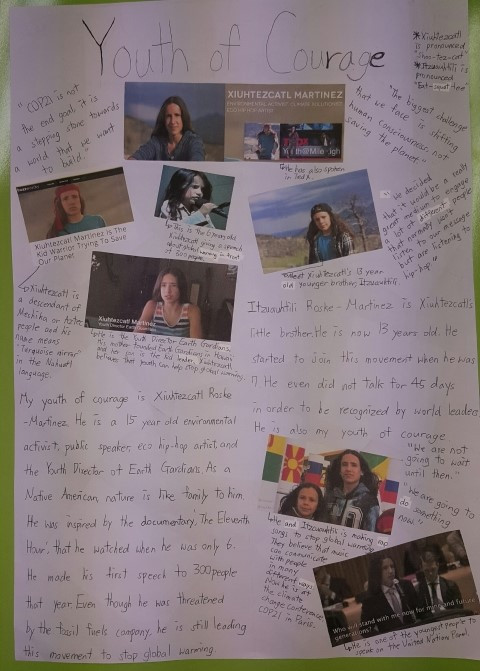 Youth of Courage
* Xiuhtezcatl
is pronounced
* Itzcuauhtli is
pronounced
"COP21 is not
the end goal it is
a stepping stone towards
a world that we want
to build."
XIUHTEZCATL MARTINEZ
"The biggest challenge
that we face is shifting
human consciousness, not
saving the planet."
He has also spoken
in TedX.
This is the 6 years old
Xiuhtezcatl giving a speech
about global warming in front
of 300 people.
"We decided
that it would be a really
great medium to engage
a lot of different people
that normally won't
listen to our message
but are listening to
hip-hop."
Xiuhtezcatl Martinez Is The
Kid Warrior Trying To Save
Our Planet
Meet Xiuhtezcatl's 13 year
old younger brother, Itzcuauhtli.
Xiuhtezcatl is
a descendant of
Meshika or Aztec
people and his
name means
"Turquoise mirror"
in the Nahuatl
language.
Xiuhtezcatl Martinez
Youth Director Earth
He is the Youth Director Earth Gardians.
His mother founded Earth Gardians in Hawaii
and her son is the kid leader. Xiuhtezcatl
believes that youth can help stop global warming.
My youth of courage is Xiuhtezcatl Roske
-Martinez. He is a 15 year old environmental
activist, public speaker, eco hip-hop artist, and
the Youth Director of Earth Gardians. As a
Native American nature is like family to him.
He was inspired by the documentary, 'The Eleventh
Hour', that he watched when he was only 6.
He made his first speech to 300 people
that year. Even though he was threatened
by the fossil fuels company, he is still leading
this movement to stop global warming.
Itzcuauhtli Roske-Martinez is Xiuhtezcatl's
little brother. He is now 13 years old. He
started to join this movement when he was
7. He even did not talk for 45 days
in order to be recognized by world leaders.
He is also my youth of courage
"We are not
going to wait
until then."
"We are going to
do something
now."
He and Itzcuauhtli is making rap
songs to stop global warming.
They believe that music
can communicate
with people
in many
different ways.
Now he is at
the climate
change conference
COP21 in Paris.
Who will stand with me now for mine and future
generations?
He is one of the youngest people to
speak on the United Nation Panel.